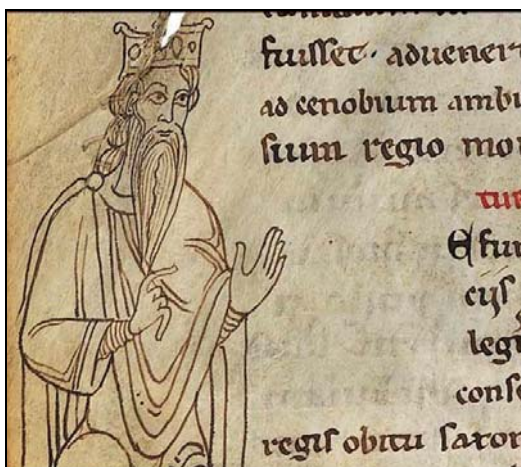 fuisset · aduener
ad cenobium ambi
suum regio mor
tur
E fui
cijs
legi
conse
regis obitu saxon